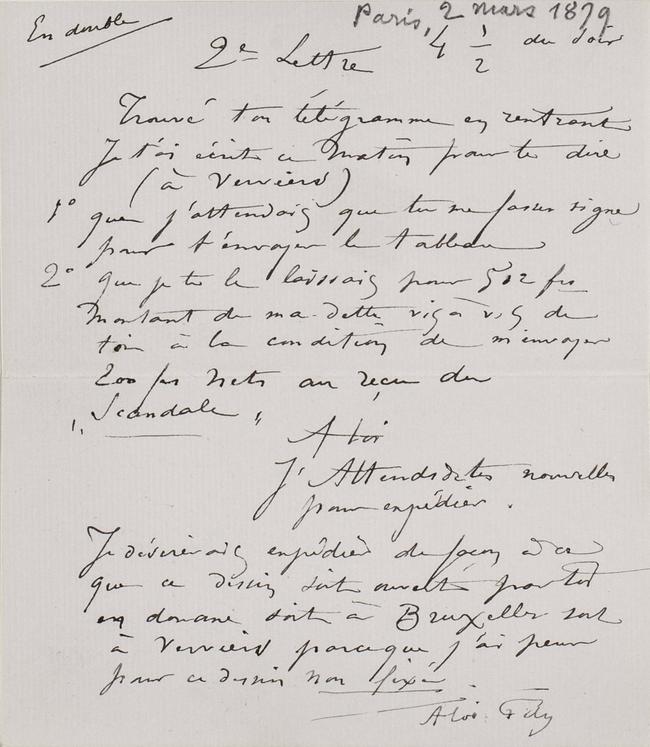 En double
Paris, 2 mars 1879
4 1/2 du soir
2e Lettre
Trouvé ton télégramme en rentrant
Je t'ai écrit ce matin pour te dire
(à Verviers)
1° que j'attendais que tu me fasses signe
pour t'envoyer le tableau
2° que je te le laissais pour 502 frs
Montant de ma dette vis à vis de
toi à la condition de m'envoyer
200 frs Nets au reçu du
"Scandale"
A toi
J'Attends de tes nouvelles
pour expédier.
Je désirerais expédier de façon à ce
que ce dessin soit ouvert par toi
en douane soit à Bruxelles soit
à Verviers parceque j'ai peur
pour ce dessin non fixé.
A toi. Fély